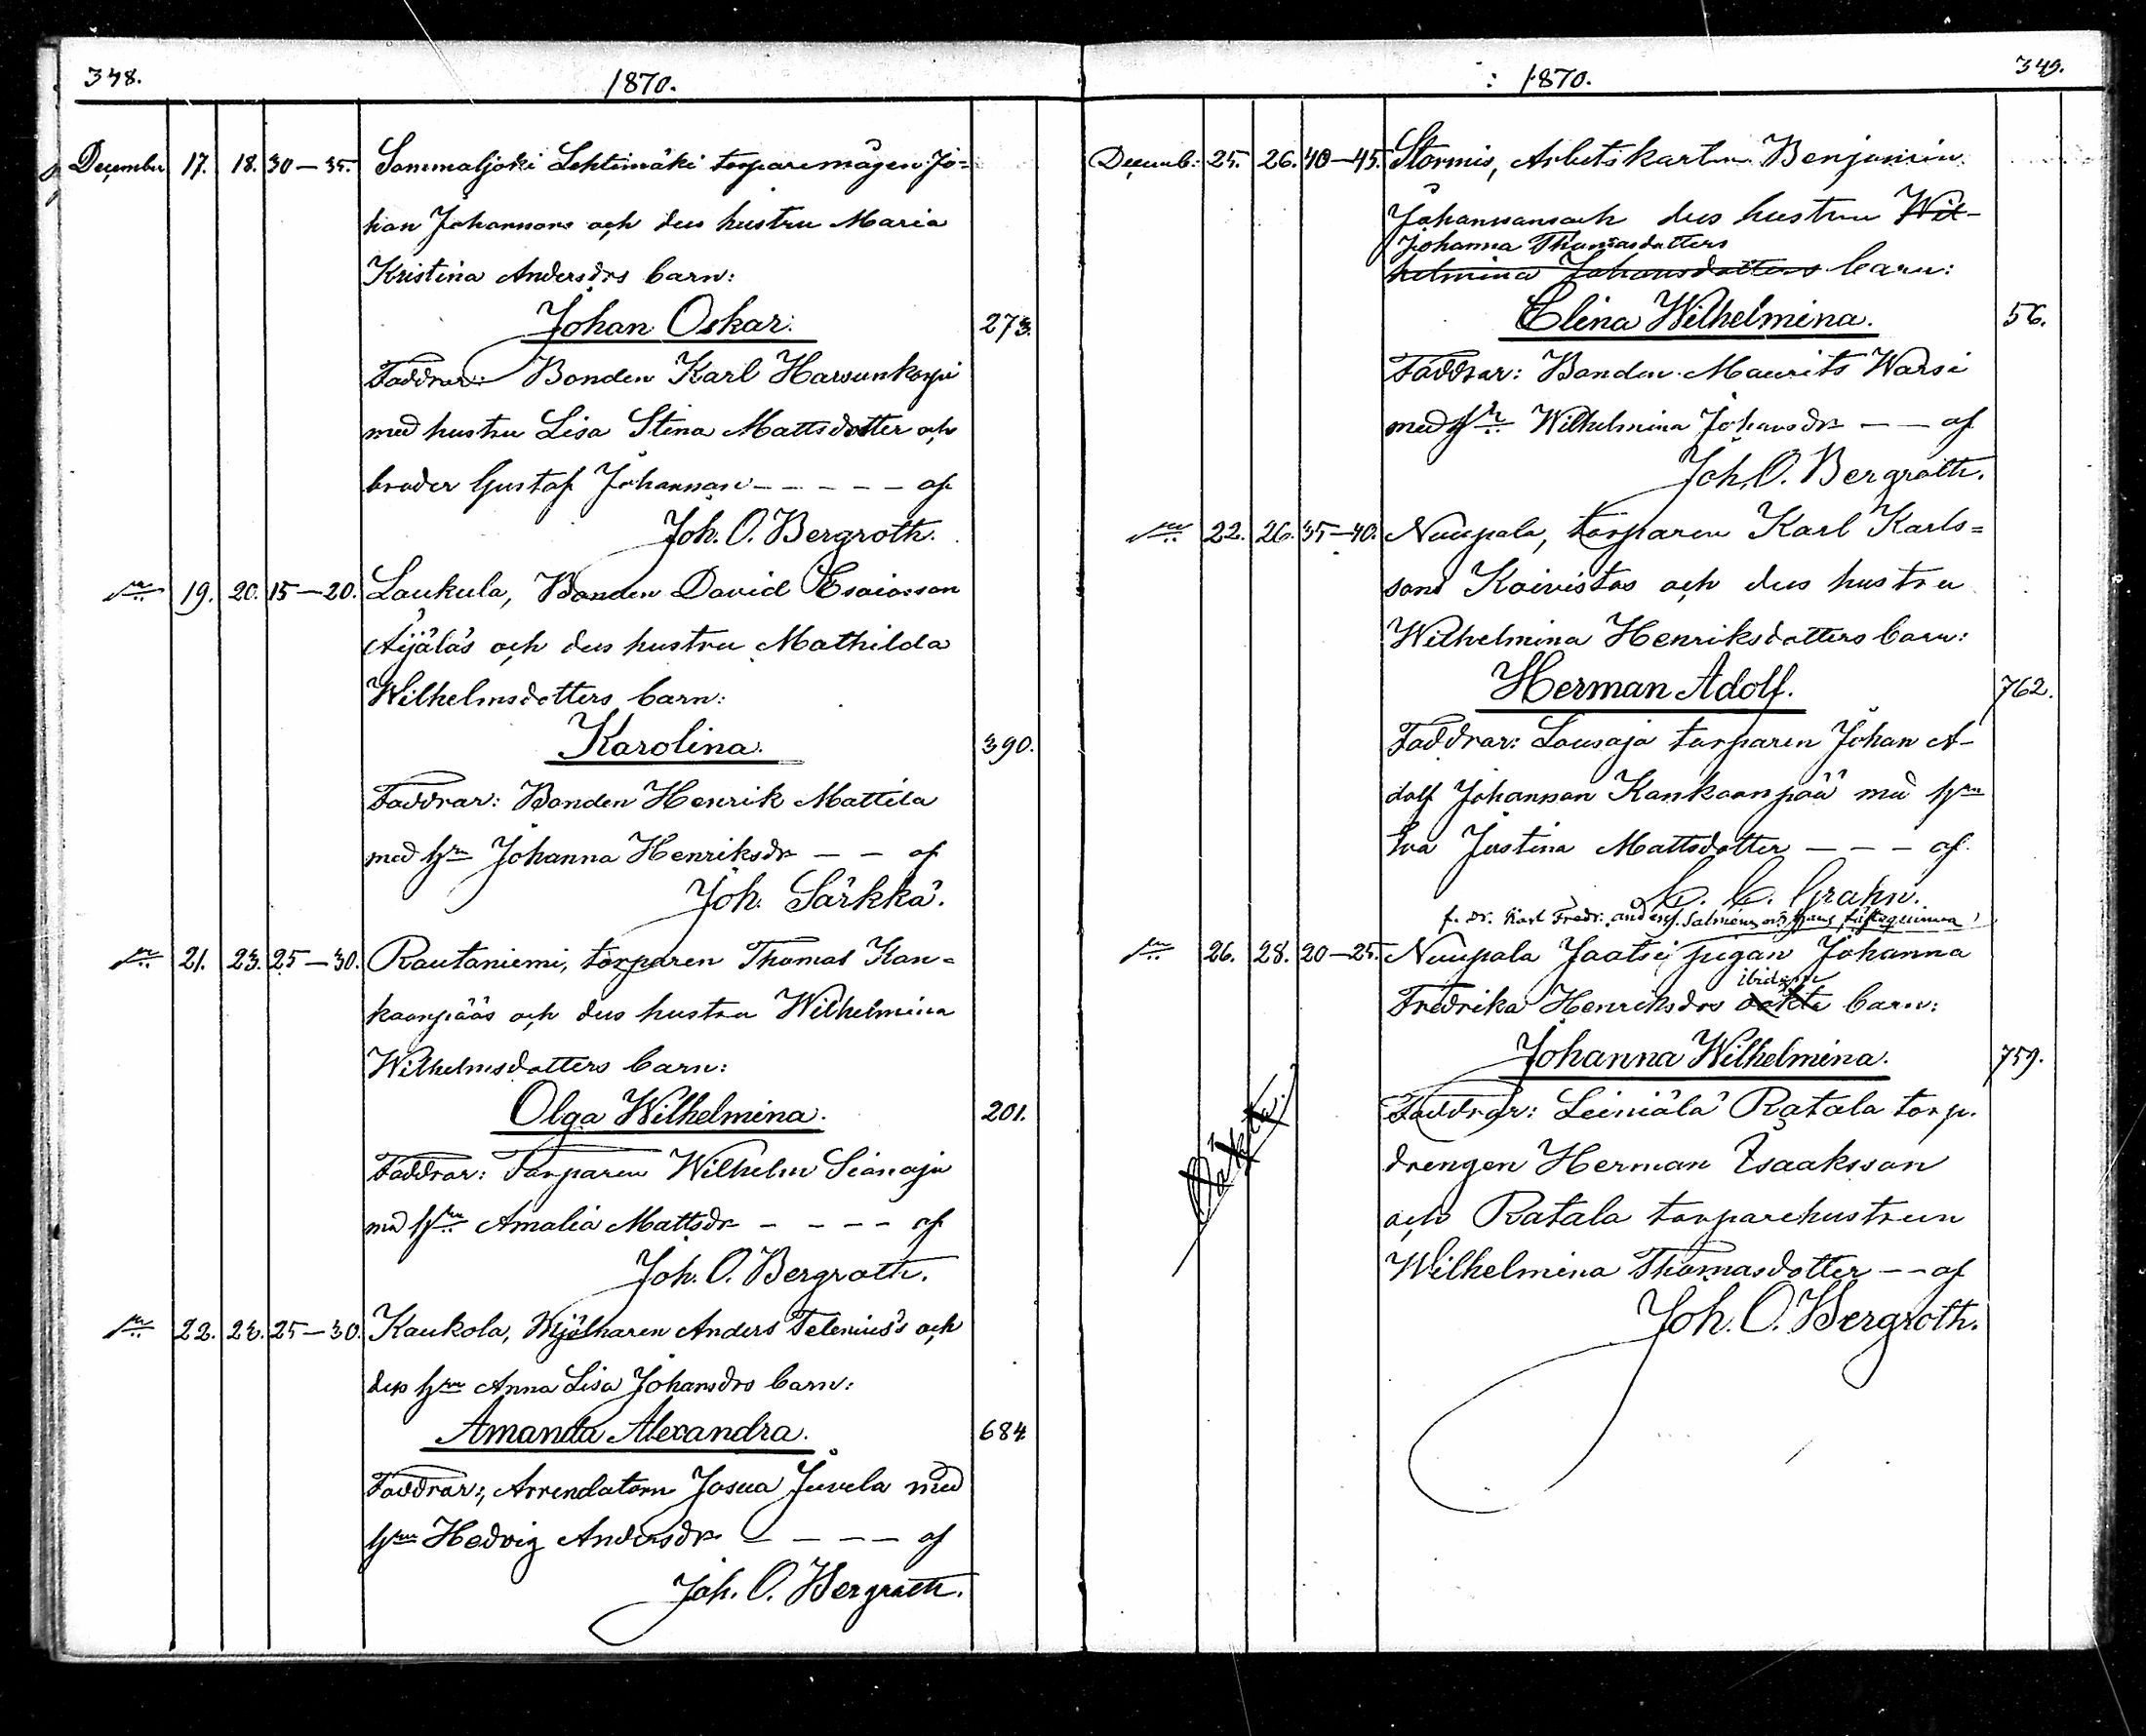 348.
1870.
December 17. 18. 30—35. Sammaljoki Lehtimäki torparemågen Jo=
han Johanssons och dess hustru Maria
Kristina Andersdrs barn:
Johan Oskar. 273.
Faddrar: Bonden Karl Harsunkorpi
med hustru Lisa Stina Mattsdotter och
broder Gustaf Johansson — — — — — af
Joh. O. Bergroth.
19. 20. 15—20. Laukula, Bonden David Esaiasson
Äijälä's och dess hustru Mathilda
Wilhelmsdotters barn:
Karolina. 390.
Faddrar: Bonden Henrik Mattila
med hru Johanna Henriksdr — — af
Joh. Särkkä.
21. 23. 25—30. Rautaniemi, torparen Thomas Kan=
kaanpääs och dess hustru Wilhelmina
Wilhelmsdotters barn:
Olga Wilhelmina. 201.
Faddrar: Torparen Wilhelm Sianoja
med hru Amalia Mattsdr — — — — af
Joh. O. Bergroth.
22. 23. 25—30. Kaukola, Mjölnaren Anders Telenius's och
dess hru Anna Lisa Johansdrs barn:
Amanda Alexandra. 684
Faddrar: Arrendatorn Josua Juvela med
hru Hedvig Andersdr — — — — af
Joh. O. Bergroth.
349.
1870.
Decemb: 25. 26. 40—45. Stormis, Arbetskarlen Benjamin
Johanssons och dess hustru Wil-
Johanna Thomasdotters
helmina Johansdotters barn:
Elina Wilhelmina. 56.
Faddrar: Bonden Maurits Warsi
med hru Wilhelmina Johansdr — — af
Joh. O. Bergroth.
22. 26. 35—40. Nuupala, torparen Karl Karls=
sons Koivistos och dess hustru
Wilhelmina Henriksdotters barn:
Herman Adolf. 762.
Faddrar: Lousaja torparen Johan A-
dolf Johansson Kankaanpää med hru
Eva Justina Mattsdotter — — — af
C. C. Grahn.
f. dr. Karl Fredr. Andersf. Salmén och hans fästeqvinna
26. 28. 20—25. Nuupala Jaatsi pigan Johanna
ibidem
Fredrika Henriksdrs oäkta barn:
Johanna Wilhelmina. 759.
Oäkta.
Faddrar: Leiniälä Ratala torp.
drengen Herman Isaaksson
och Ratala torparehustrun
Wilhelmina Thomasdotter — — af
Joh. O. Bergroth.